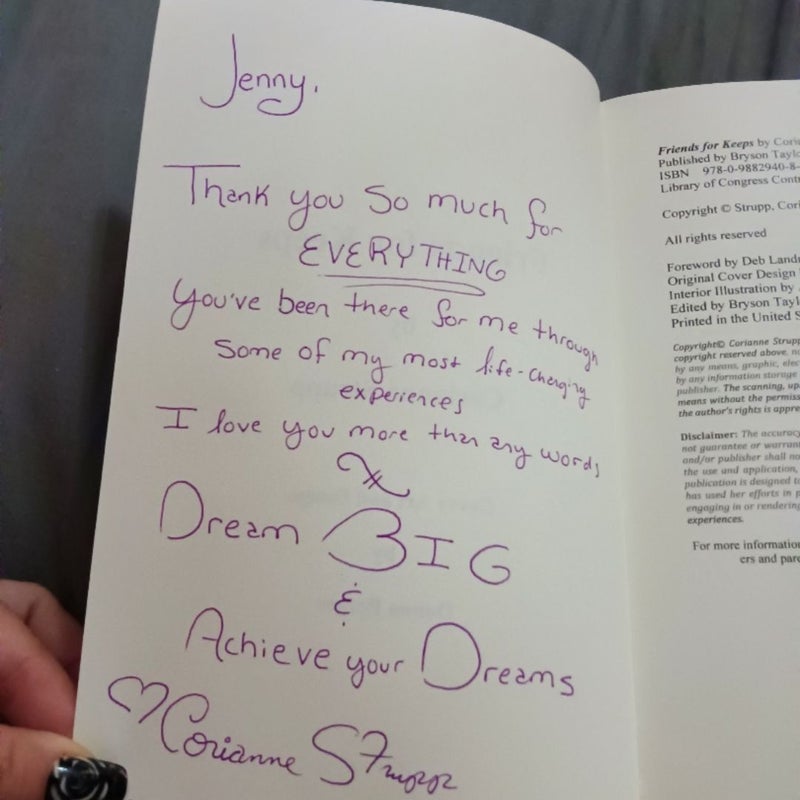 Jenny,
Thank you so much for
EVERYTHING
You've been there for me through
some of my most life-changing
experiences
I love you more than any words
Dream BIG
&
Achieve your Dreams
♡ Corianne Strupp
Friends for Keeps by Coria
Published by Bryson Taylo
ISBN 978-0-9882940-8-
Library of Congress Cont
Copyright © Strupp, Cori
All rights reserved
Foreword by Deb Landr
Original Cover Design
Interior Illustration by
Edited by Bryson Tayl
Printed in the United S
Copyright© Corianne Strupp
copyright reserved above, no
by any means, graphic, elec
by any information storage
publisher. The scanning, up
means without the permiss
the author's rights is appre
Disclaimer: The accuracy
not guarantee or warrant
and/or publisher shall no
the use and application,
publication is designed to
has used her efforts in p
engaging in or rendering
experiences.
For more information
ers and pare